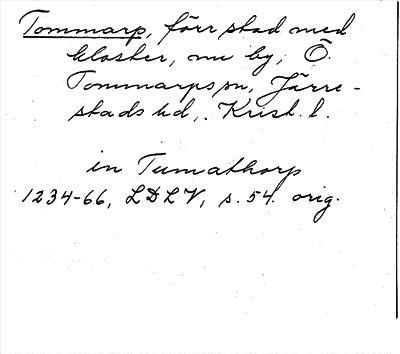 Tommarp, förr stad med
kloster, nu by, Ö.
Tommarps sn, Järre-
stads hd, Krist. l.
in Tumathorp
1234-66, LDLV, s. 54. orig.